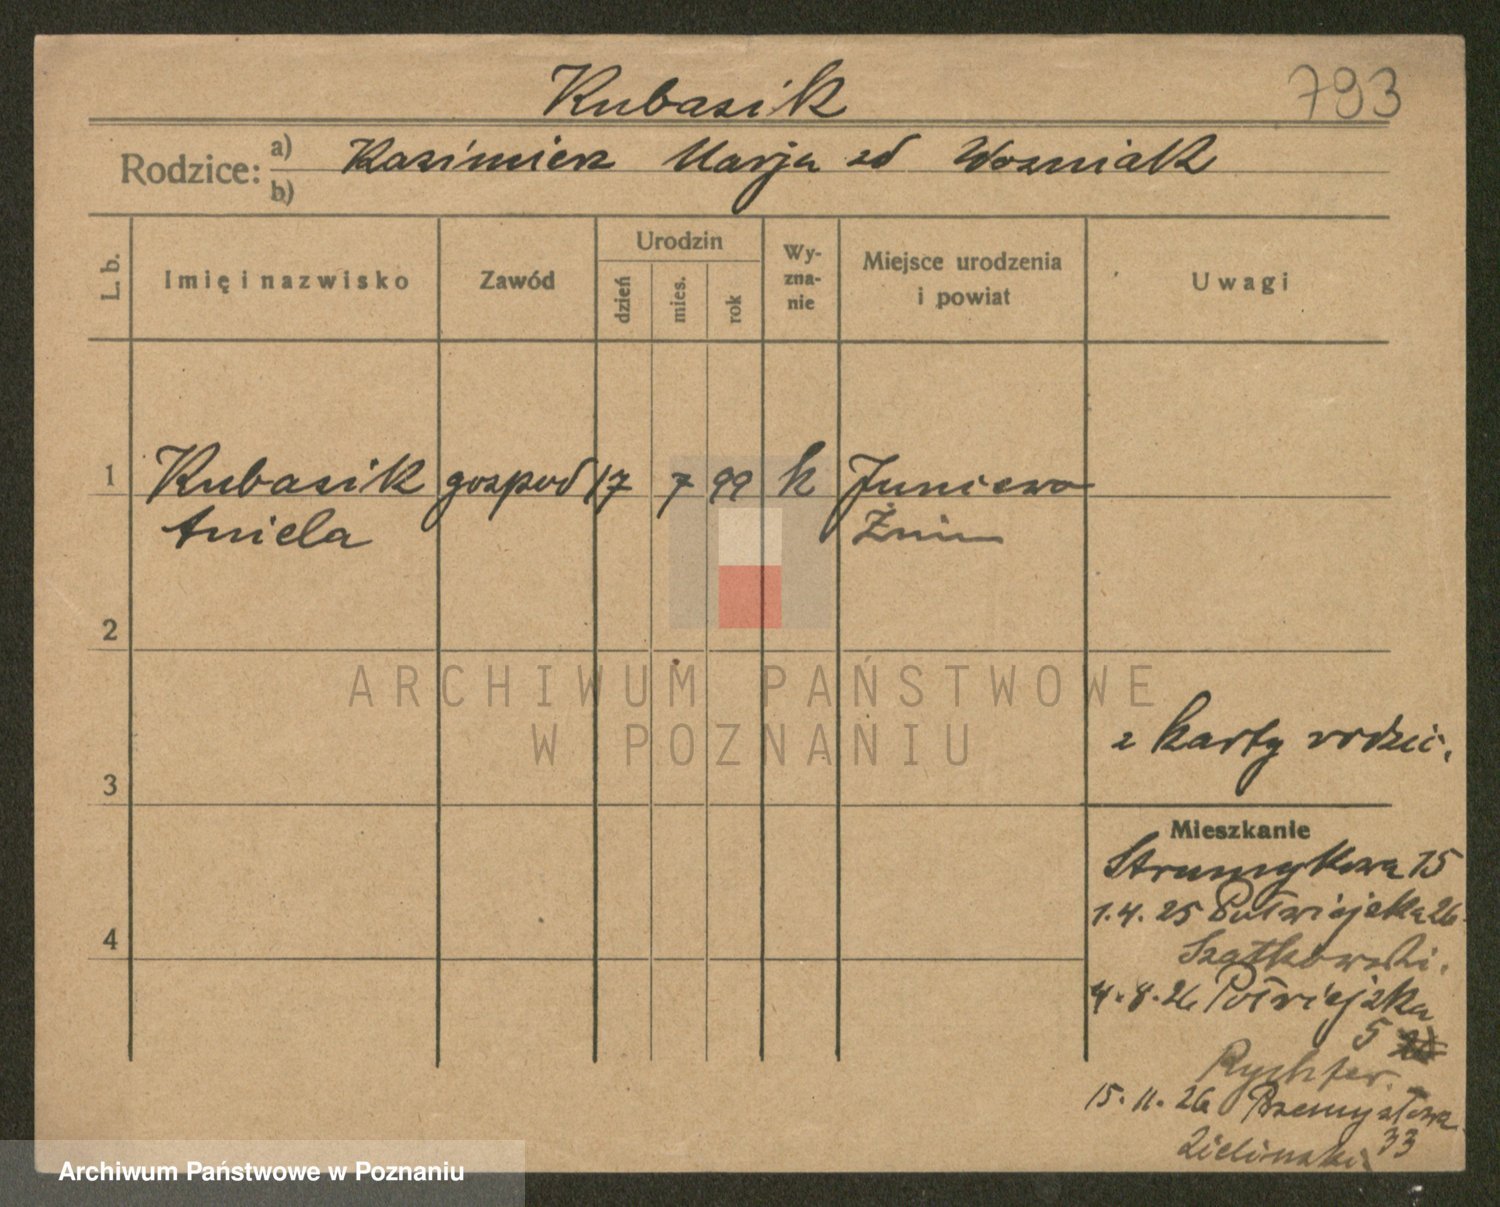 Kubasik 793
Rodzice: a) Kazimierz Marja zd Wozniak
b)
L. b. Imię i nazwisko Zawód Urodzin dzień mies. rok Wy-zna-nie Miejsce urodzenia i powiat Uwagi
1 Kubasik gospod 17 7 99 k Juniewo
Aniela Żnin
2
z karty rodzic.
3
Mieszkanie
Strumykowa 15
1.4.25 Półwiejska 26
Szatkowski.
4
4.8.26 Półwiejska
5
Rychter.
15.11.26 Przemysłowa
33
Zielinski
ARCHIWUM PAŃSTWOWE
W POZNANIU
Archiwum Państwowe w Poznaniu